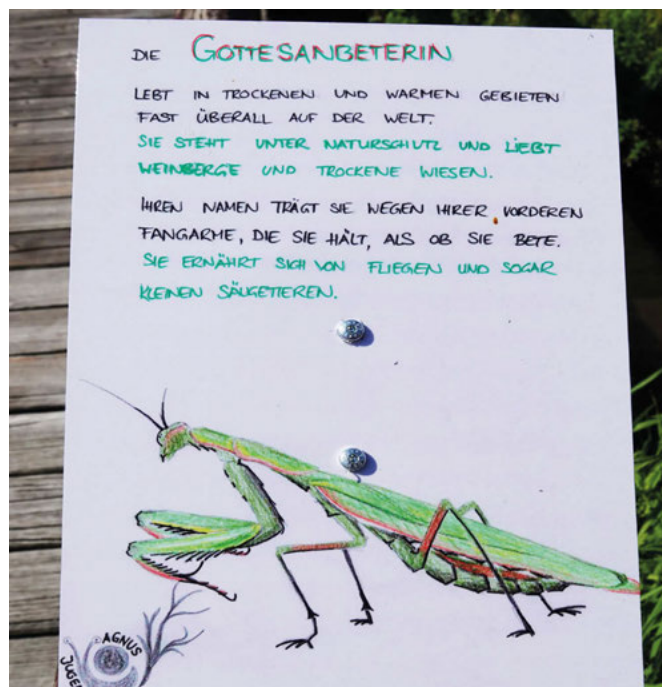 DIE GOTTESANBETERIN
LEBT IN TROCKENEN UND WARMEN GEBIETEN
FAST ÜBERALL AUF DER WELT.
SIE STEHT UNTER NATURSCHUTZ UND LIEBT
WEINBERGE UND TROCKENE WIESEN.
IHREN NAMEN TRÄGT SIE WEGEN IHRER VORDEREN
FANGARME, DIE SIE HÄLT, ALS OB SIE BETE.
SIE ERNÄHRT SICH VON FLIEGEN UND SOGAR
KLEINEN SÄUGETIEREN.
AGNUS